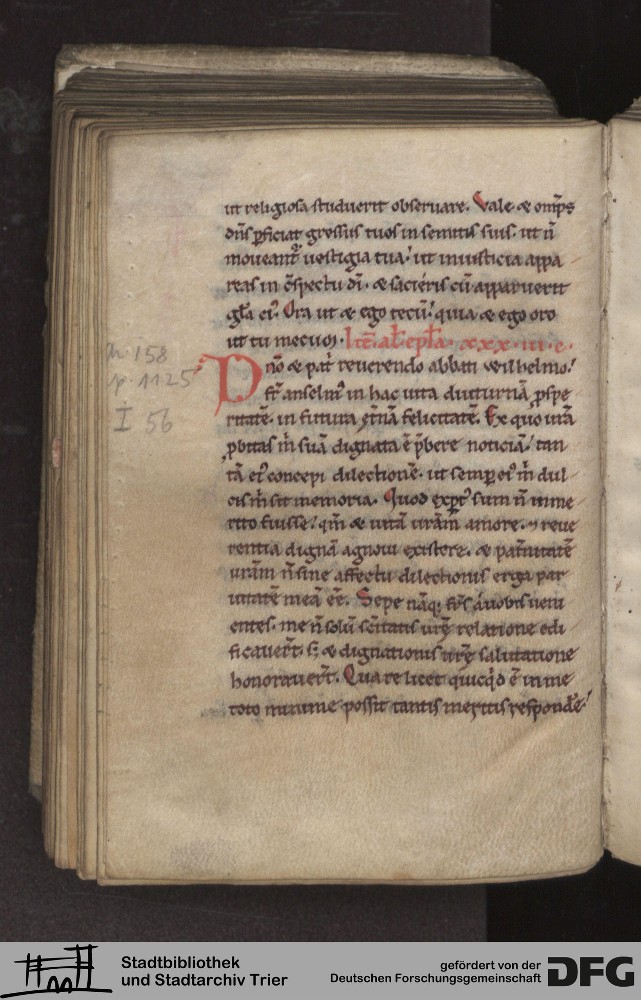 ut religiosa studuerit obseruare. Vale & omp̄s
dn̄s ꝑficiat gressus tuos in semitis suis. ut n̄
moueant᷑ uestigia tua. ut in iusticia appa
reas in c̄spectu dī. & sacieris cū apparuerit
gl̄a eiꝰ. Ora ut & ego tecū. quia & ego oro
ut tu mecum. Itē. al̄. epl̄a. xxx. iii. c.
Dn̄o & pat̄ reuerendo abbati Wilhelmo.
fr̄ anselmꝰ in hac uita diuturnā ꝓspe
ritatē. in futura et̄nā felicitatē. Ex quo urā
ꝓbitas m̄ suā dignata ē p̄bere noticiā. tan
tā eiꝰ concepi dilectionē. ut semꝑ eiꝰ m̄ dul
cis m̄ sit memoria. Quod exꝑtꝰ sum n̄ inme
rito fuisse. qm̄ & uitā urām̄ amore. ⁊ reue
rentia dignā agnoui existere. & pat̄nitatē
urām n̄ sine affectu dilectionis erga par
uitatē meā eē. Sepe nāq; fr̄s a uobis ueni
entes. me n̄ solū sc̄itatis urȩ̄ relatione edi
ficauer̄t. s; & dignationis urȩ̄ salutatione
honorauer̄t. Quare licet quicq̇d ē in me
toto minime possit tantis meritis respondēe.
n. 158
p. 1125
I 56
Stadtbibliothek
und Stadtarchiv Trier
gefördert von der
Deutschen Forschungsgemeinschaft
DFG